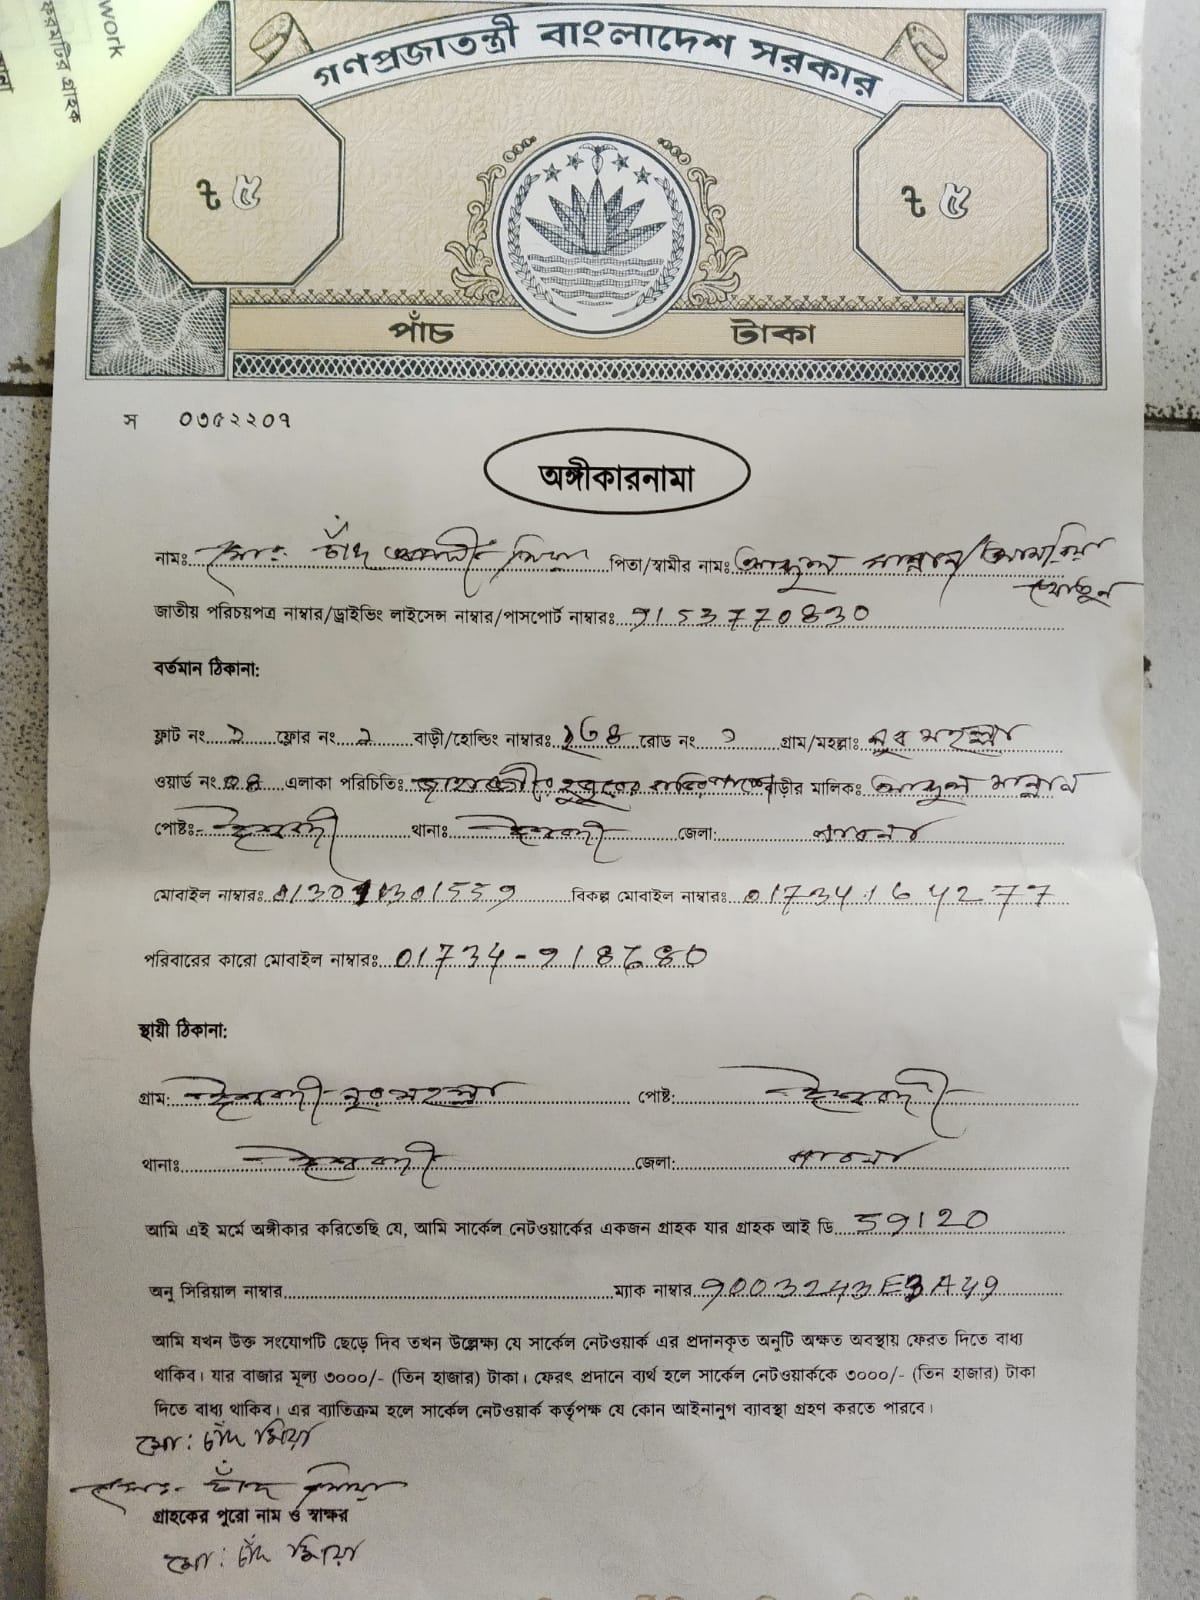 work
করমটির গ্রাহক
গণপ্রজাতন্ত্রী বাংলাদেশ সরকার
৳ ৫ ৳ ৫
পাঁচ টাকা
স ০৩৫২২০৭
অঙ্গীকারনামা
নামঃ মোঃ চাঁদ মিয়া পিতা/স্বামীর নামঃ আব্দুল মান্নান/
খাতুন
জাতীয় পরিচয়পত্র নাম্বার/ড্রাইভিং লাইসেন্স নাম্বার/পাসপোর্ট নাম্বারঃ 9153770830
বর্তমান ঠিকানা:
ফ্লাট নং ২ ফ্লোর নং ২ বাড়ী/হোল্ডিং নাম্বারঃ রোড নং ১ গ্রাম/মহল্লাঃ নুর মহল্লা
ওয়ার্ড নং ০৪ এলাকা পরিচিতিঃ হুজুরের বাড়ির পাশে বাড়ীর মালিকঃ আব্দুল মান্নান
পোষ্টঃ- ঈশ্বরদী থানাঃ ঈশ্বরদী জেলা: পাবনা
মোবাইল নাম্বারঃ বিকল্প মোবাইল নাম্বারঃ 01734164277
পরিবারের কারো মোবাইল নাম্বারঃ
স্থায়ী ঠিকানা:
গ্রাম: ঈশ্বরদী নুর মহল্লা পোষ্ট: ঈশ্বরদী
থানাঃ ঈশ্বরদী জেলা: পাবনা
আমি এই মর্মে অঙ্গীকার করিতেছি যে, আমি সার্কেল নেটওয়ার্কের একজন গ্রাহক যার গ্রাহক আই ডি 59120
অনু সিরিয়াল নাম্বার ম্যাক নাম্বার
আমি যখন উক্ত সংযোগটি ছেড়ে দিব তখন উল্লেক্ষ্য যে সার্কেল নেটওয়ার্ক এর প্রদানকৃত অনুটি অক্ষত অবস্থায় ফেরত দিতে বাধ্য
থাকিব। যার বাজার মূল্য ৩০০০/- (তিন হাজার) টাকা। ফেরৎ প্রদানে ব্যর্থ হলে সার্কেল নেটওয়ার্ককে ৩০০০/- (তিন হাজার) টাকা
দিতে বাধ্য থাকিব। এর ব্যাতিক্রম হলে সার্কেল নেটওয়ার্ক কর্তৃপক্ষ যে কোন আইনানুগ ব্যাবস্থা গ্রহণ করতে পারবে।
মো: চাঁদ মিয়া
মোঃ চাঁদ মিয়া
গ্রাহকের পুরো নাম ও স্বাক্ষর
মো: চাঁদ মিয়া